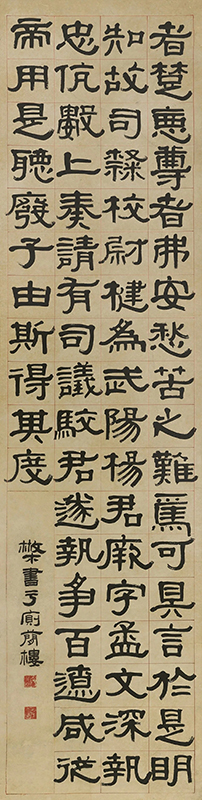 者楚惡尊者弗安愁苦之難焉可具言於是明
知故司隸校尉楗為武陽楊君厥字孟文深執
忠伉數上奏請有司議駮君遂執爭百遼咸從
帝用是聽廢子由斯得其度
書于廁簡樓